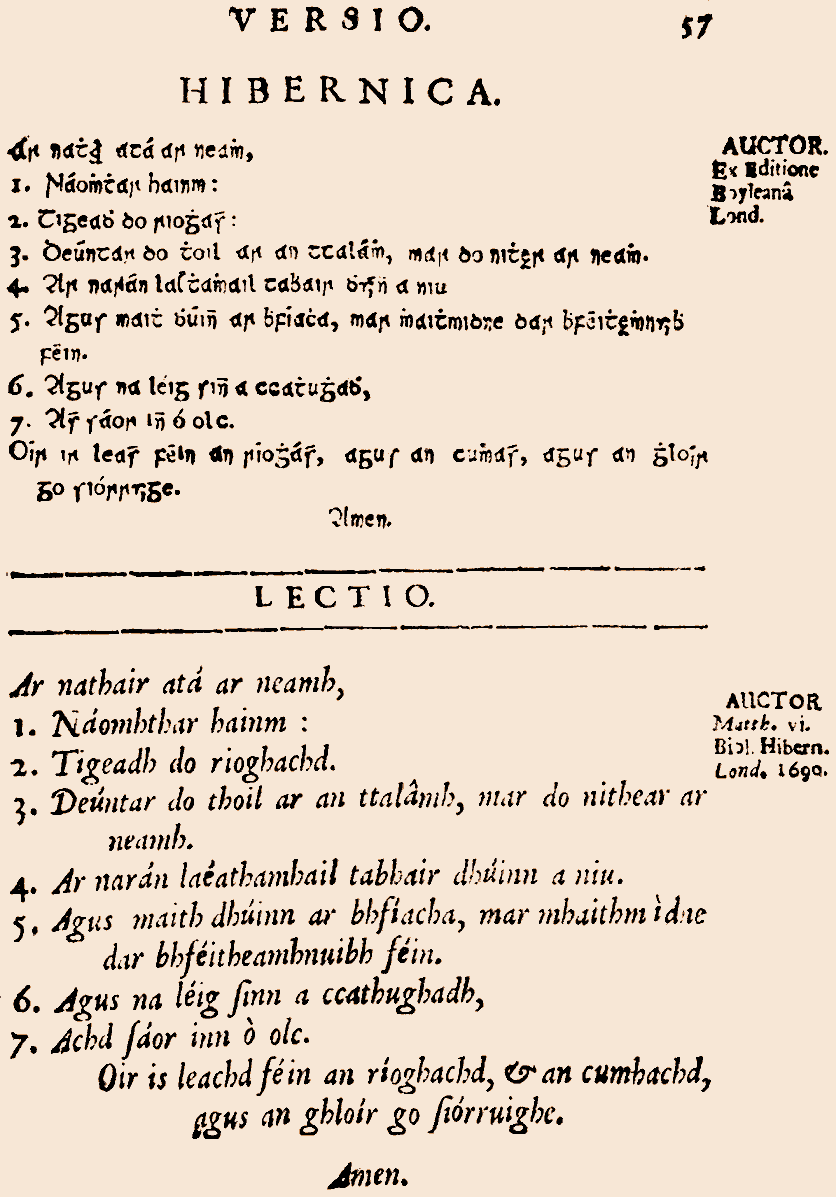 VERSIO. 57
HIBERNICA.
Ar naṫꝛ atá ar neaṁ,
AUCTOR.
Ex Editione
Boyleanâ
Lond.
1. Náoṁṫar hainm :
2. Tigeaḋ do rioġaċꝺ :
3. Deúntar do ṫoil ar an ttaláṁ, mar do niṫer ar neaṁ.
4. Ar narán laéṫaṁail taḃair ḋúiñ a niu
5. Agus maiṫ ḋúiñ ar ḃfíaċa, mar ṁaiṫmidne dar ḃféiṫeṁnuiḃ
féin.
6. Agus na léig siñ a ccaṫuġaḋ,
7. Aċꝺ sáor iñ ó olc.
Oír is leaċꝺ féin an ríoġáċꝺ, agus an cuṁaċꝺ, agus an ġloír
go síórruiġe.
Amen.
LECTIO.
Ar nathair atá ar neamh,
1. Náomhthar hainm :
2. Tigeadh do rioghachd.
3. Deúntar do thoil ar an ttalâmh, mar do nithear ar
neamh.
4. Ar narán laéathamhail tabhair dhúinn a niu.
5. Agus maith dhúinn ar bhfíacha, mar mhaithm ìdne
dar bhféitheamhnuibh féin.
6. Agus na léig ſinn a ccathughadh,
7. Achd ſáor inn ò olc.
Oir is leachd féin an ríoghachd, & an cumhachd,
agus an ghloír go ſiórruighe.
Amen.
AUCTOR
Matth. vi.
Bibl. Hibern.
Lond. 1690.